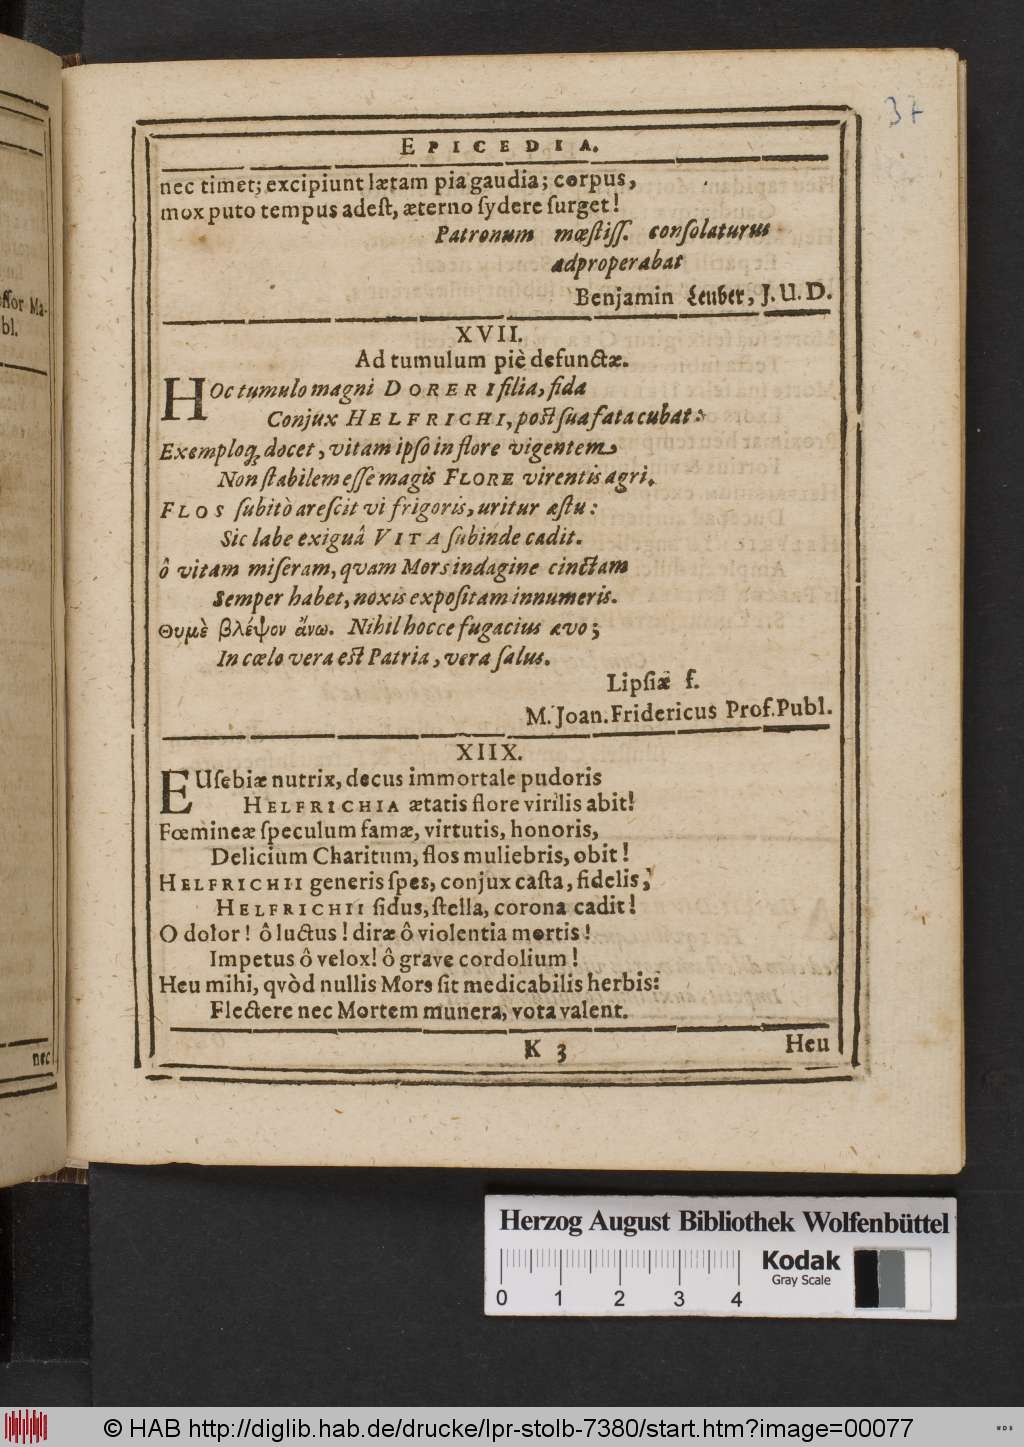 37
EPICEDIA.
nec timet; excipiunt lætam pia gaudia; corpus,
mox puto tempus adest, æterno sydere surget!
Patronum mœstiss. consolaturus
adproperabat
Benjamin Leuber, J.U.D.
XVII.
Ad tumulum piè defunctæ.
HOc tumulo magni DORERI filia, fida
Conjux HELFRICHI, post sua fata cubat:
Exemploq; docet, vitam ipso in flore vigentem
Non stabilem esse magis FLORE virentis agri.
FLOS subitò arescit vi frigoris, uritur æstu:
Sic labe exiguâ VITA subinde cadit.
ô vitam miseram, quam Mors indagine cinctam
Semper habet, noxis expositam innumeris.
Θυμὲ βλέψον ἄνω. Nihil hocce fugacius ævo;
In cœlo vera est Patria, vera salus.
Lipsiæ f.
M. Joan. Fridericus Prof. Publ.
XIIX.
EUsebiæ nutrix, decus immortale pudoris
HELFRICHIA ætatis flore virilis abit!
Fœmineæ speculum famæ, virtutis, honoris,
Delicium Charitum, flos muliebris, obit!
HELFRICHII generis spes, conjux casta, fidelis,
HELFRICHII sidus, stella, corona cadit!
O dolor! ô luctus! diræ ô violentia mortis!
Impetus ô velox! ô grave cordolium!
Heu mihi, qvòd nullis Mors sit medicabilis herbis:
Flectere nec Mortem munera, vota valent.
K 3
Heu
essor Ma-
bl.
nec
Herzog August Bibliothek Wolfenbüttel
0 1 2 3 4
Kodak
Gray Scale
© HAB http://diglib.hab.de/drucke/lpr-stolb-7380/start.htm?image=00077